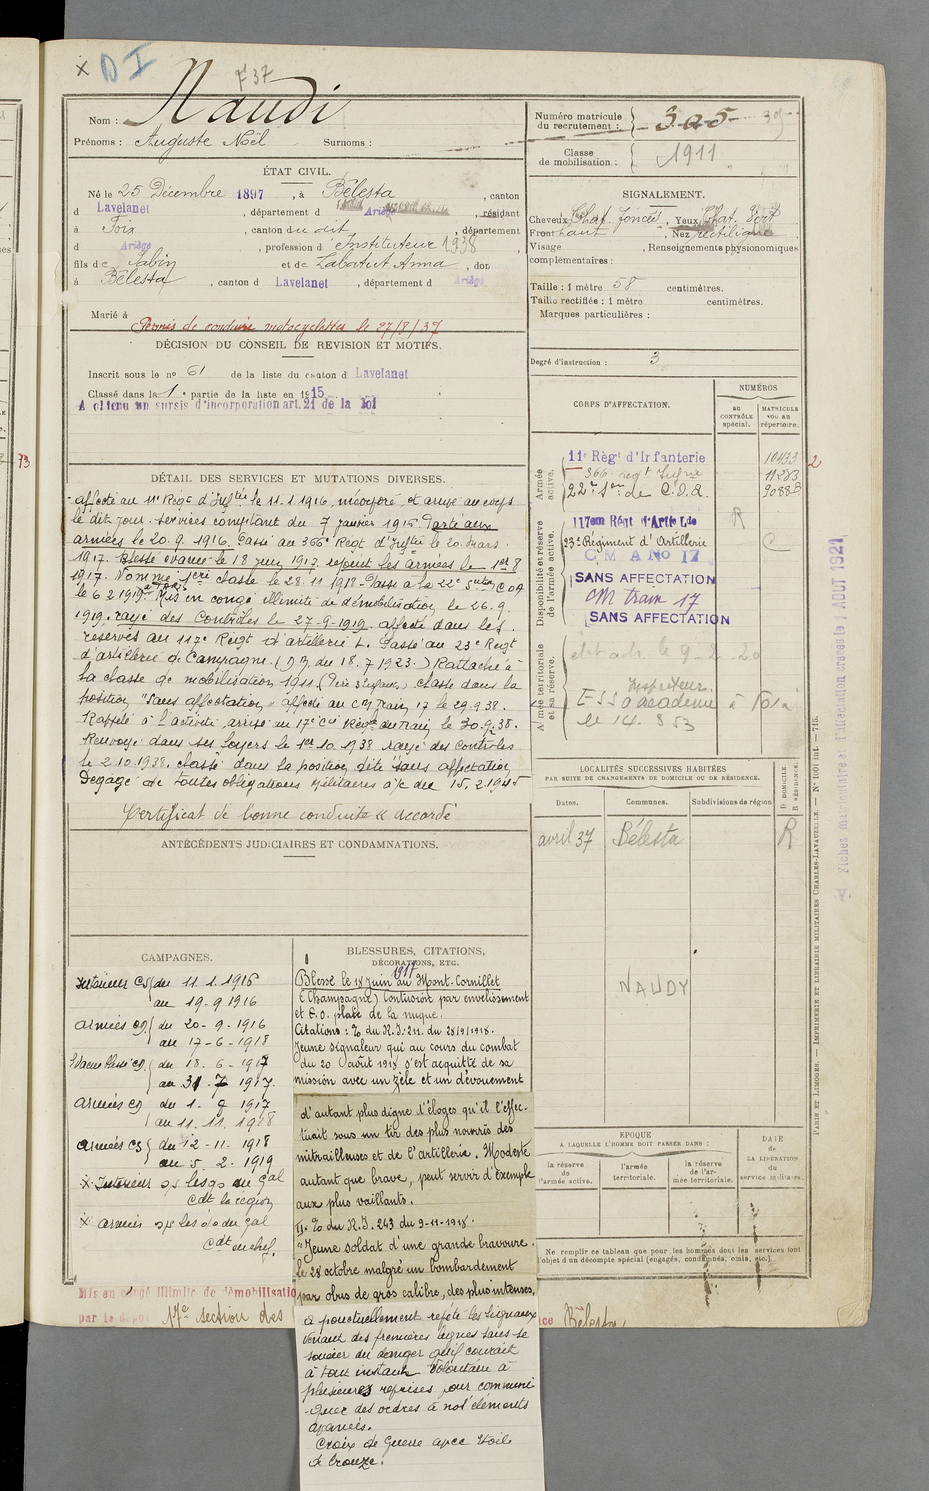 x D I F 37
Nom : Naudi
Prénoms : Auguste Noël Surnoms :
ÉTAT CIVIL.
Né le 25 Décembre 1897 , à Bélesta , canton
d Lavelanet , département d Ariège , résidant
à Foix , canton du dit , département
d Ariège , profession d'Instituteur 1938
fils de Jabin et de Labatut Anna , don
à Bélesta , canton d Lavelanet , département d Ariège
Marié à
Permis de conduire motocyclettes le 27/8/37
DÉCISION DU CONSEIL DE REVISION ET MOTIFS.
Inscrit sous le no 61 de la liste du canton d Lavelanet
Classé dans la 1e partie de la liste en 1915
A obtenu un sursis d'incorporation art. 21 de la loi
DÉTAIL DES SERVICES ET MUTATIONS DIVERSES.
affecté au 11e Régt d'Inftie le 11.1.1916, incorporé et arrivé au corps
le dit jour. Services comptant du 7 janvier 1916. Parti aux
armées le 20.9.1916. Passé au 366e Régt d'Inftie le 20 mars
1917. Blessé évacué le 18 juin 1917 rejoint les armées le 1er 8
1917. Nommé 1ere classe le 28.11.1918. Passé à la 22e Son COA
le 6 2 1919. Mis en congé illimité de démobilisation le 26.9.
1919. rayé des contrôles le 27-9-1919. affecté dans les
réserves au 117e Régt d'artillerie L. Passé au 23e Régt
d'artillerie de Campagne. (DM du 18.7.1923.) Rattaché à
la classe de mobilisation 1911. (Père 3 enfants) Classé dans la
position "Sans affectation" affecté au CM Train 17 le 29.9.38.
Rappelé à l'activité, arrivé au 17e Cie Régle du Train le 30.9.38.
Renvoyé dans ses foyers le 1er 10 1938 rayé des contrôles
le 2.10.1938. Classé dans la position dite sans affectation
Dégagé de toutes obligations militaires à/c du 15.2.1945
Certificat de bonne conduite "accordé"
ANTÉCÉDENTS JUDICIAIRES ET CONDAMNATIONS.
CAMPAGNES.
Intérieur CS du 11.1.1916
au 19-9 1916
armées CD du 20-9-1916
au 17-6-1918
Evacué blessé CD du 18.6-1917
au 31-7 1917
armées CD du 1-8 1917
au 11.11.1918
armées CS du 12-11-1918
au 5.2.1919
x Intérieur
Cdt la région
x armées
Cdt en chef.
BLESSURES, CITATIONS,
DÉCORATIONS, ETC.
Blessé le 18 juin 1917 au Mont-Cornillet
(Champagne) Contusion par ensevelissement
et E.O. plaie de la nuque.
Citations : % du R.I. 211. du 28/9/1918.
Jeune signaleur qui au cours du combat
du 20 août 1918 s'est acquitté de sa
mission avec un zèle et un dévouement
d'autant plus digne d'éloges qu'il l'effec-
tuait sous un tir des plus nourris des
mitrailleuses et de l'artillerie. Modeste
autant que brave, peut servir d'exemple
aux plus vaillants.
II- % du R.I. 243 du 9-11-1918.
"Jeune soldat d'une grande bravoure.
le 28 octobre malgré un bombardement
par obus de gros calibre, des plus intenses,
a ponctuellement répété les signaux
venant des premières lignes sans se
soucier du danger qu'il courait
à tout instant. Volontaire à
plusieures reprises pour communi-
-quer des ordres à nos éléments
avancés.
Croix de Guerre avec Etoile
de bronze.
Mis en congé illimité de démobilisation
par le dépôt 17e section des
Bélesta
Numéro matricule
du recrutement : 305
Classe
de mobilisation : 1911
SIGNALEMENT.
Cheveux Chat. foncé , Yeux Chat. Vert
Front haut , Nez rectiligne
Visage , Renseignements physionomiques
complémentaires :
Taille : 1 mètre 58 centimètres.
Taille rectifiée : 1 mètre centimètres.
Marques particulières :
Degré d'instruction : 3
CORPS D'AFFECTATION.
NUMÉROS
au
CONTRÔLE
spécial.
MATRICULE
ou au
répertoire.
Armée
active.
11e Régt d'Infanterie 10433
366e régt Infrie 11283
22e Son de C.O.A. 9088B
2
73
Disponibilité et réserve
de l'armée active.
117em Régt d'Artie Lde R
23e Régiment d'Artillerie C
C M A No 17
SANS AFFECTATION
CM train 17
SANS AFFECTATION
Armée territoriale
et sa réserve.
le 9-2-20
Inspecteur
E S S d'académie à Foix
le 14.8 53
LOCALITÉS SUCCESSIVES HABITÉES
PAR SUITE DE CHANGEMENTS DE DOMICILE OU DE RÉSIDENCE.
Dates. Communes. Subdivisions de région
D DOMICILE.
R RÉSIDENCE.
avril 37 Bélesta R
NAUDY
ÉPOQUE
A LAQUELLE L'HOMME DOIT PASSER DANS :
la réserve
de
l'armée active.
l'armée
territoriale.
la réserve
de l'ar-
mée territoriale.
DATE
de
LA LIBÉRATION
du
service militaire.
Ne remplir ce tableau que pour les hommes dont les services font
l'objet d'un décompte spécial (engagés, condamnés, omis, etc.)
PARIS ET LIMOGES. — IMPRIMERIE ET LIBRAIRIE MILITAIRES CHARLES-LAVAUZELLE. — N° 1001 int. — 715.
Fiches matriculaire et d'affectation créées le 1 AOUT 1921